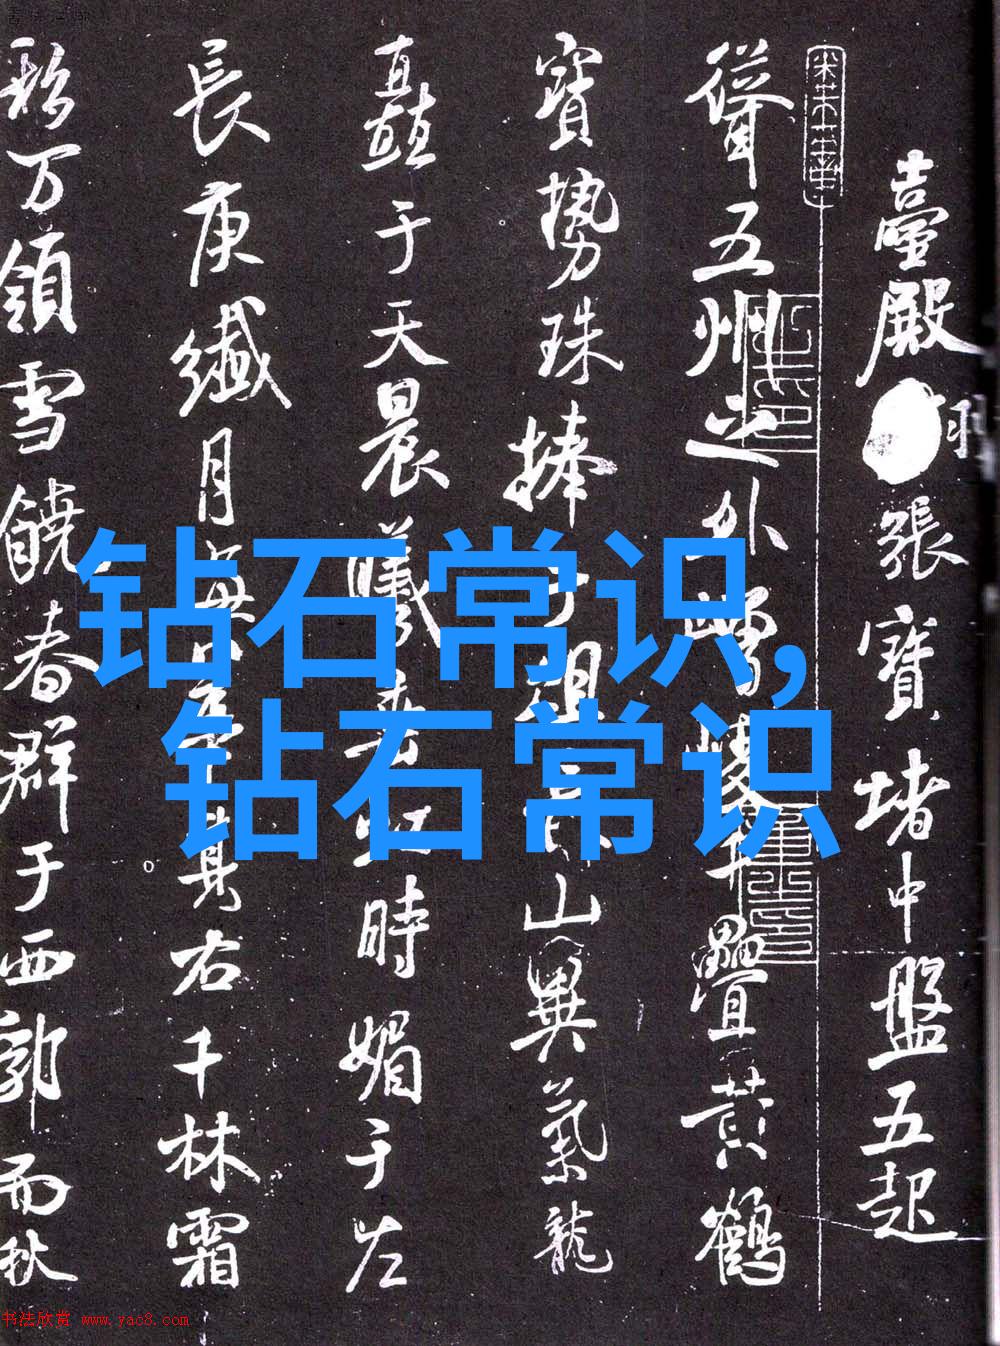 臺殿
張寶堵中盤五起
聳五州之外
疊黃鶴
寶勢珠捧
山異氣龍
矗于天晨曦
時媚于左
長庚纖月
其右千林霜
粉万領雪饒春群于西郭而秋
钻石常识,
钻石常识
书法欣赏 www.yac8.com